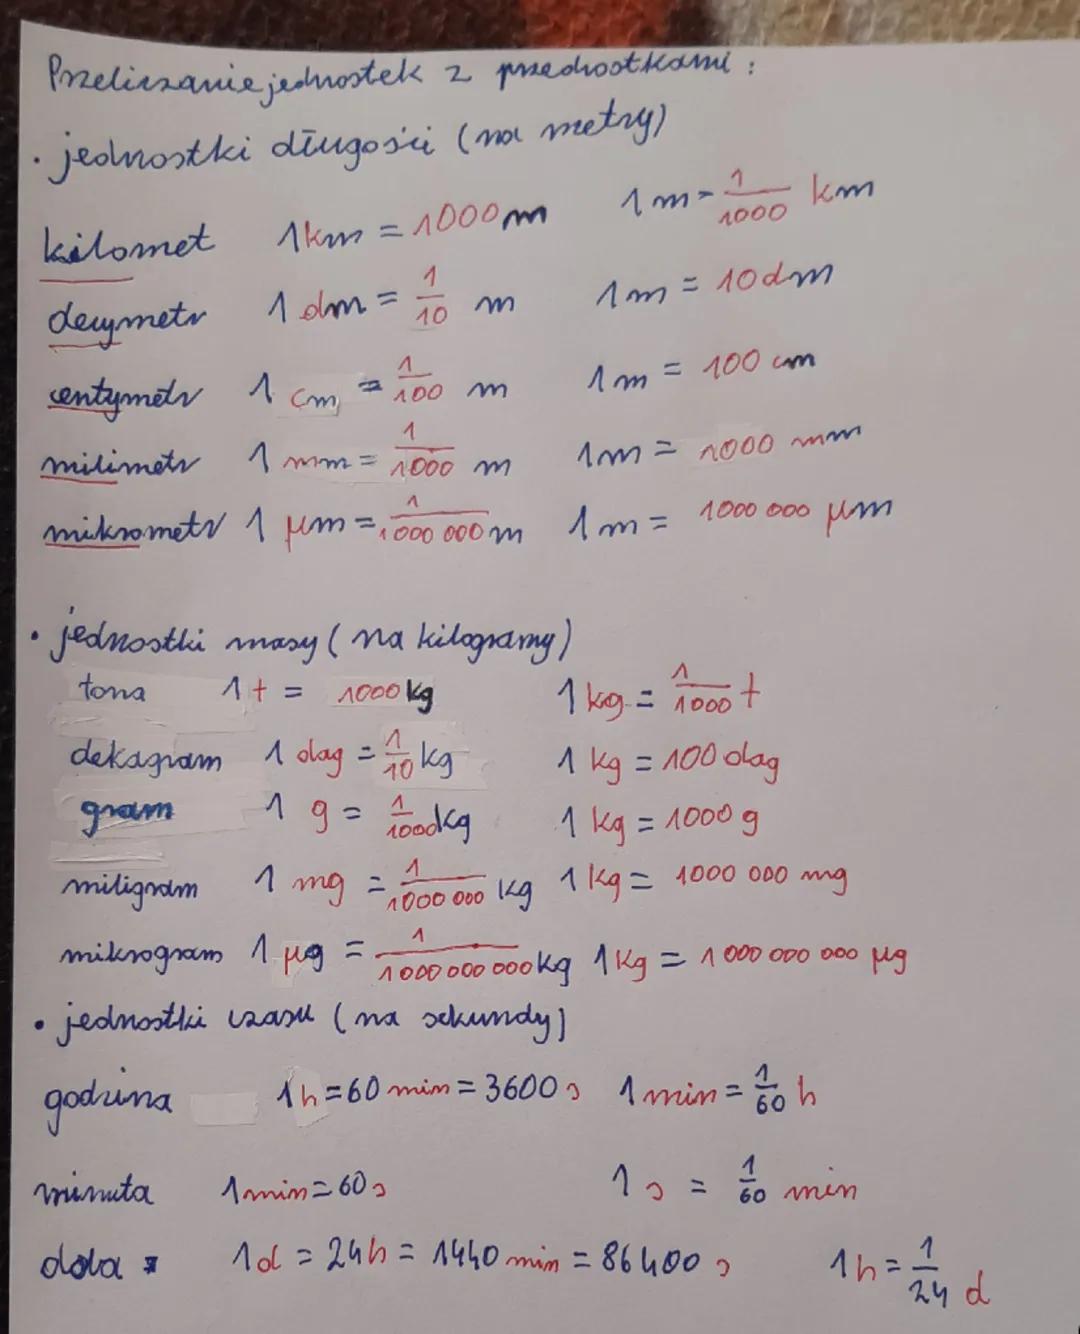 Przeliczanie jednostek z przedrostkami:
• jednostki długości (na metry)
kilomet 1km = 1000m 1m = 1/1000 km
decymetr 1 dm = 1/10 m 1m = 10dm
centymetr 1 cm = 1/100 m 1m = 100 cm
milimetr 1 mm = 1/1000 m 1m = 1000 mm
mikrometr 1 µm = 1/1000 000 m 1m = 1000 000 µm
• jednostki masy (na kilogramy)
tona 1t = 1000kg 1kg = 1/1000 t
dekagram 1 dag = 1/10 kg 1 kg = 100 dag
gram 1 g = 1/1000 kg 1 kg = 1000 g
miligram 1 mg = 1/1000 000 kg 1 kg = 1000 000 mg
mikrogram 1 µg = 1/1000 000 000 kg 1 kg = 1 000 000 000 µg
• jednostki czasu (na sekundy)
godzina 1h = 60 min = 3600 s 1 min = 1/60 h
minuta 1min = 60 s 1 s = 1/60 min
doba 1d = 24h = 1440 min = 86400 s 1h = 1/24 d